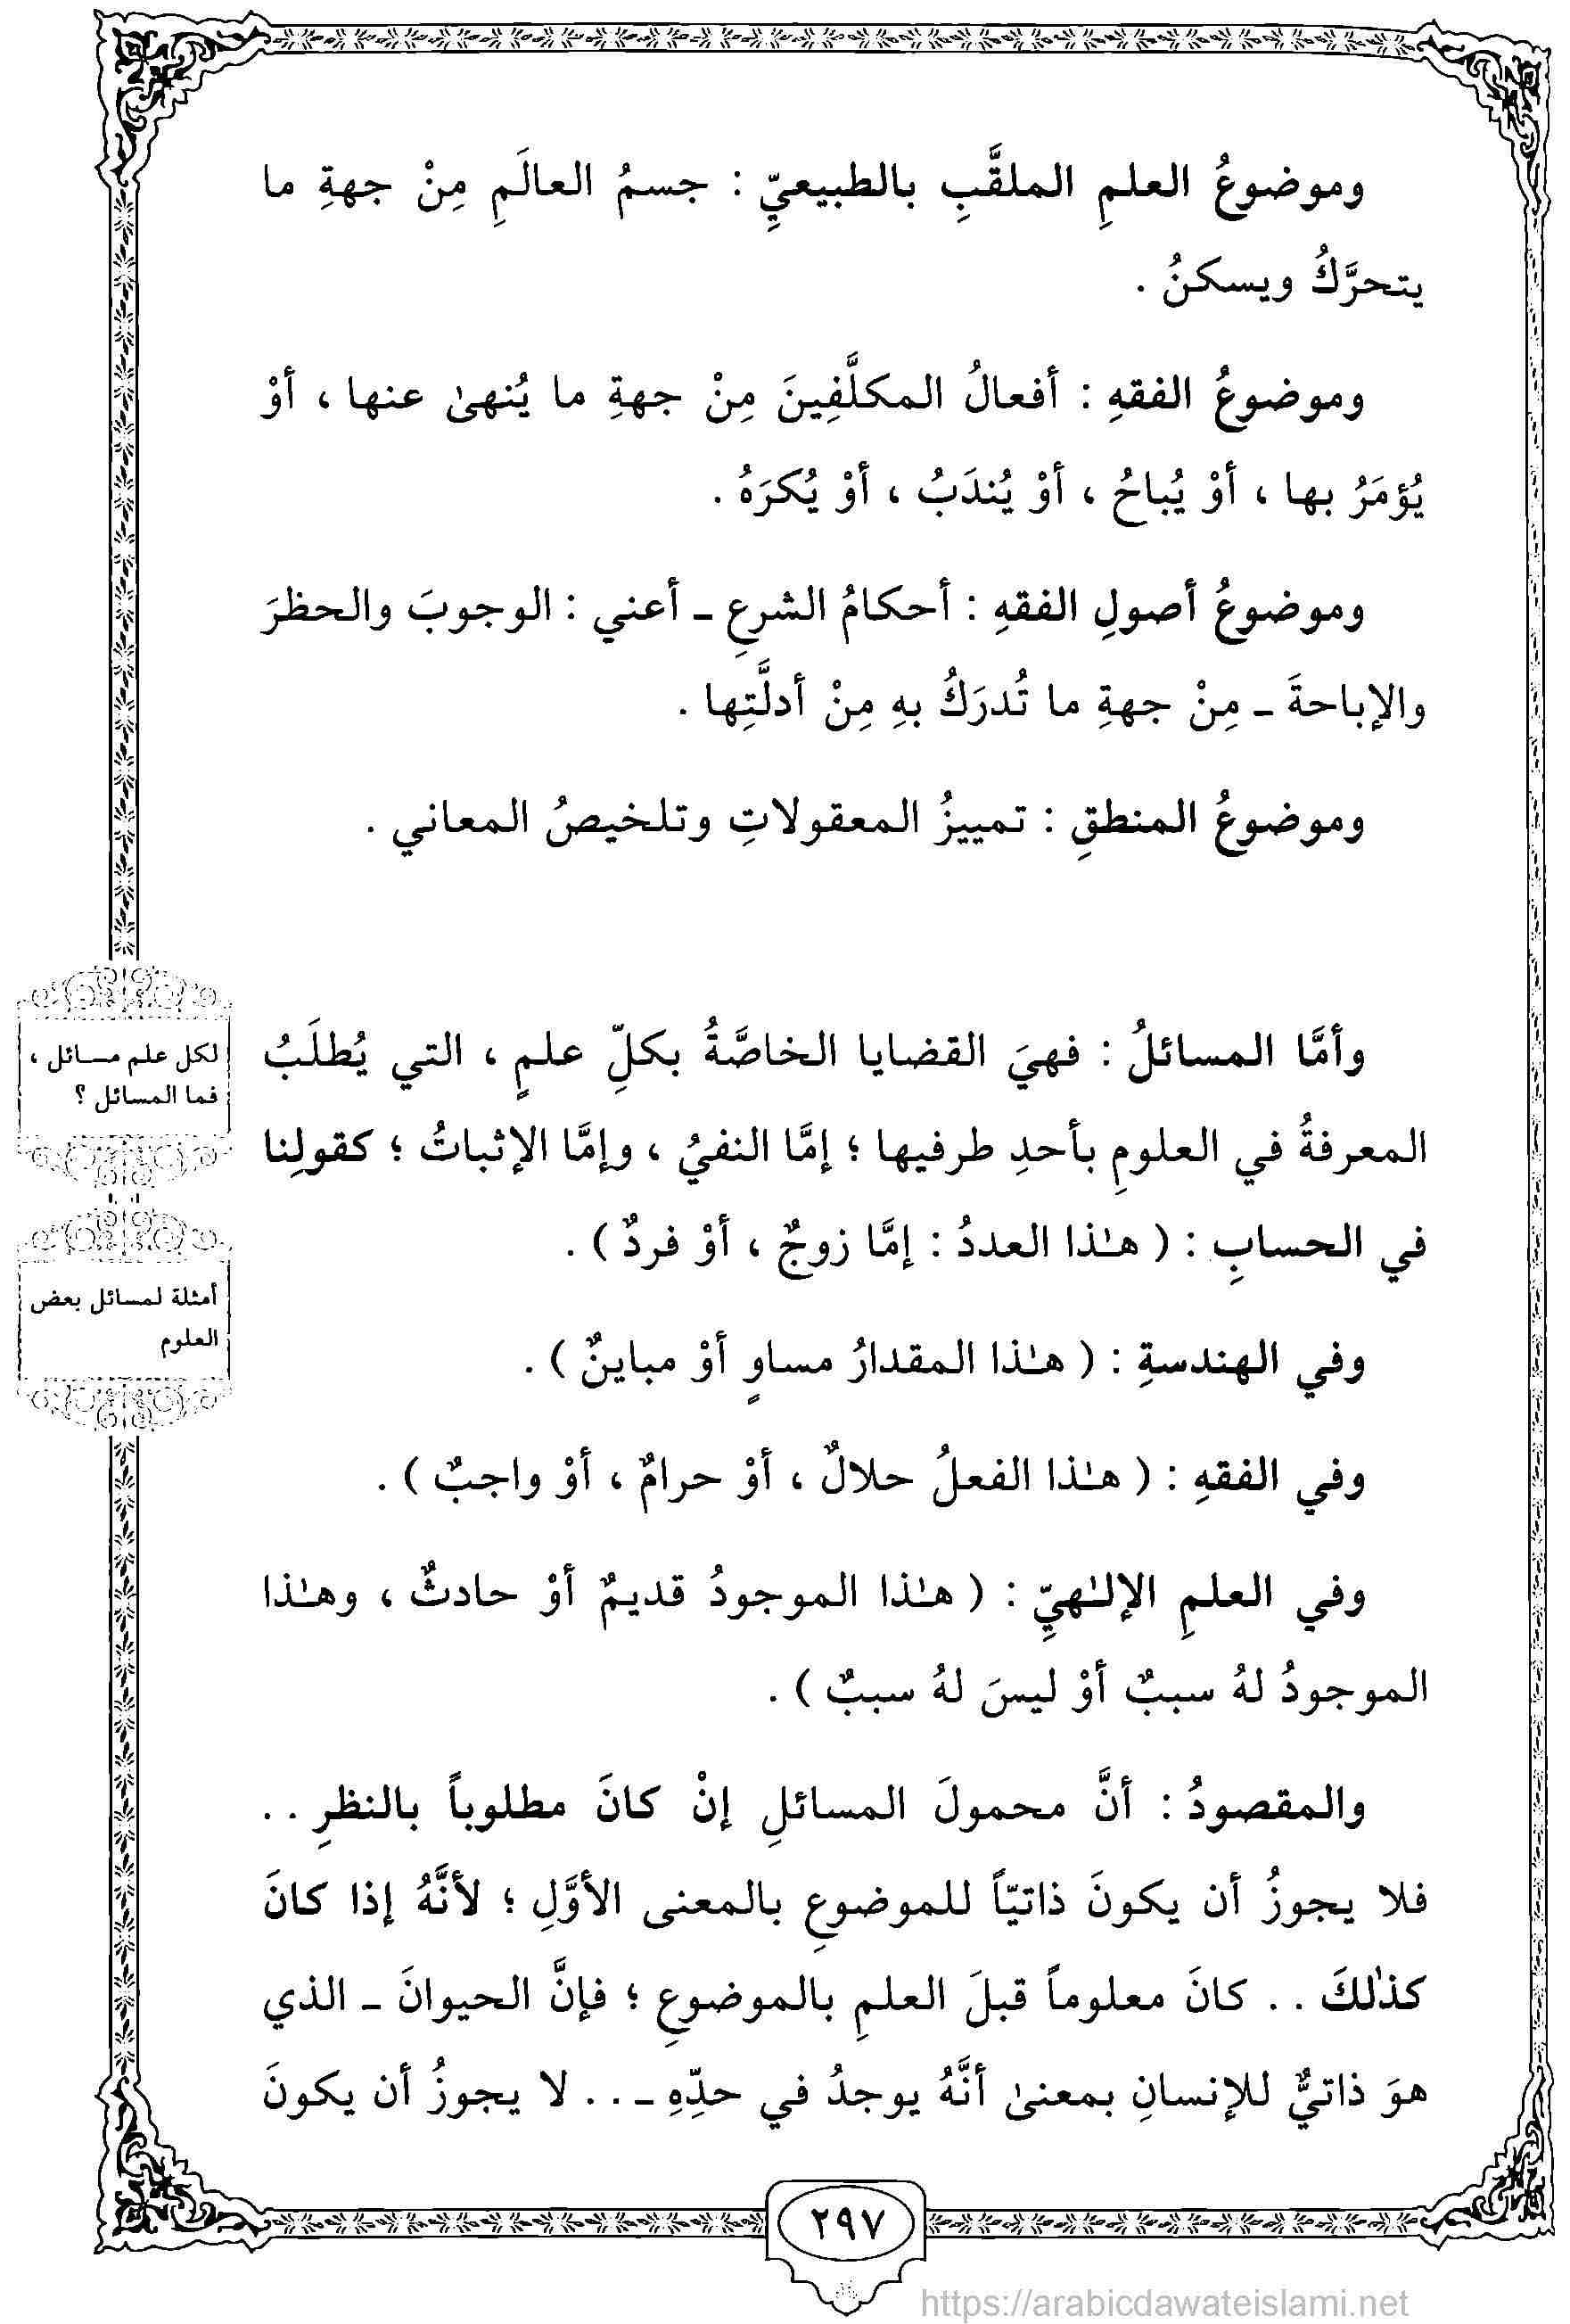 وموضوعُ العلمِ الملقَّبِ بالطبيعيِّ : جسمُ العالَمِ مِنْ جهةِ ما
يتحرَّكُ ويسكنُ .
وموضوعُ الفقهِ : أفعالُ المكلَّفِينَ مِنْ جهةِ ما يُنهىٰ عنها ، أوْ
يُؤمَرُ بها ، أوْ يُباحُ ، أوْ يُندَبُ ، أوْ يُكرَهُ .
وموضوعُ أصولِ الفقهِ : أحكامُ الشرعِ ـ أعني : الوجوبَ والحظرَ
والإباحةَ ـ مِنْ جهةِ ما تُدرَكُ بهِ مِنْ أدلَّتِها .
وموضوعُ المنطقِ : تمييزُ المعقولاتِ وتلخيصُ المعاني .
لكل علم مسائل ،
فما المسائل ؟
وأمَّا المسائلُ : فهيَ القضايا الخاصَّةُ بكلِّ علمٍ ، التي يُطلَبُ
المعرفةُ في العلومِ بأحدِ طرفيها ؛ إمَّا النفيُ ، وإمَّا الإثباتُ ؛ كقولِنا
في الحسابِ : ( هـٰذا العددُ : إمَّا زوجٌ ، أوْ فردٌ ) .
أمثلة لمسائل بعض
العلوم
وفي الهندسةِ : ( هـٰذا المقدارُ مساوٍ أوْ مباينٌ ) .
وفي الفقهِ : ( هـٰذا الفعلُ حلالٌ ، أوْ حرامٌ ، أوْ واجبٌ ) .
وفي العلمِ الإلـٰهيِّ : ( هـٰذا الموجودُ قديمٌ أوْ حادثٌ ، وهـٰذا
الموجودُ لهُ سببٌ أوْ ليسَ لهُ سببٌ ) .
والمقصودُ : أنَّ محمولَ المسائلِ إنْ كانَ مطلوباً بالنظرِ . .
فلا يجوزُ أن يكونَ ذاتيّاً للموضوعِ بالمعنى الأوَّلِ ؛ لأنَّهُ إذا كانَ
كذٰلكَ . . كانَ معلوماً قبلَ العلمِ بالموضوعِ ؛ فإنَّ الحيوانَ ـ الذي
هوَ ذاتيٌّ للإنسانِ بمعنىٰ أنَّهُ يوجدُ في حدِّهِ ـ . . لا يجوزُ أن يكونَ
٢٩٧
https://arabicdawateislami.net